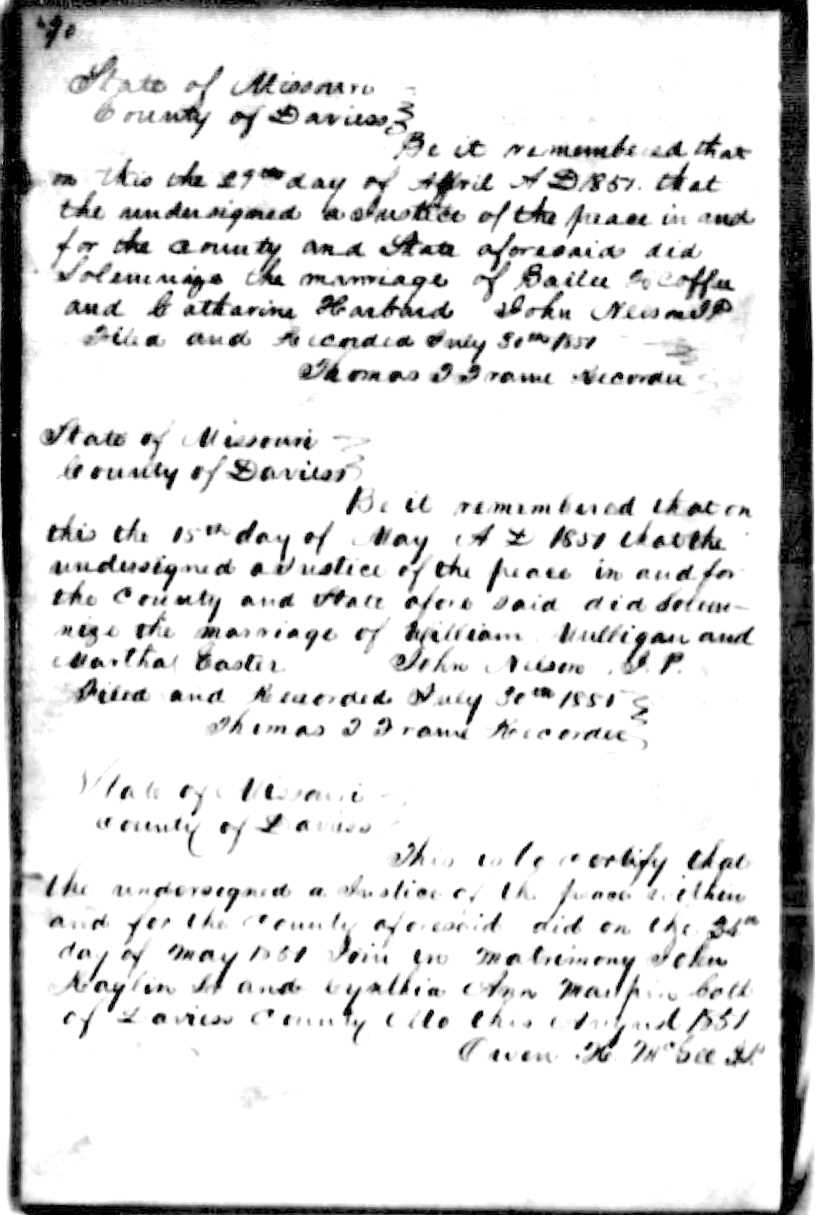 90
State of Missouri
County of Daviess
Be it remembered that
on this the 29th day of April A D 1851 that
the undersigned a Justice of the peace in and
for the County and State aforesaid did
Solemnize the marriage of Bailee
and Catharine Harbard John Nelson J P
Filed and Recorded July 30th 1851
Thomas T Frame Recorder
State of Missouri
County of Daviess
Be it remembered that on
this the 15th day of May A D 1851 that the
undersigned a Justice of the peace in and for
the County and State afore said did Solem-
nize the marriage of William Mulligan and
Martha Easter John Nelson J. P.
Filed and Recorded July 30th 1851
Thomas T Frame Recorder
State of Missouri
County of Daviess
This is to certify that
the undersigned a Justice of the peace within
and for the County aforesaid did on the
day of May 1851 Join in matrimony John
Kaylin Sr and Cynthia Ann Maupin both
of Daviess County Mo this August 1851
Owen H McGee J.P.